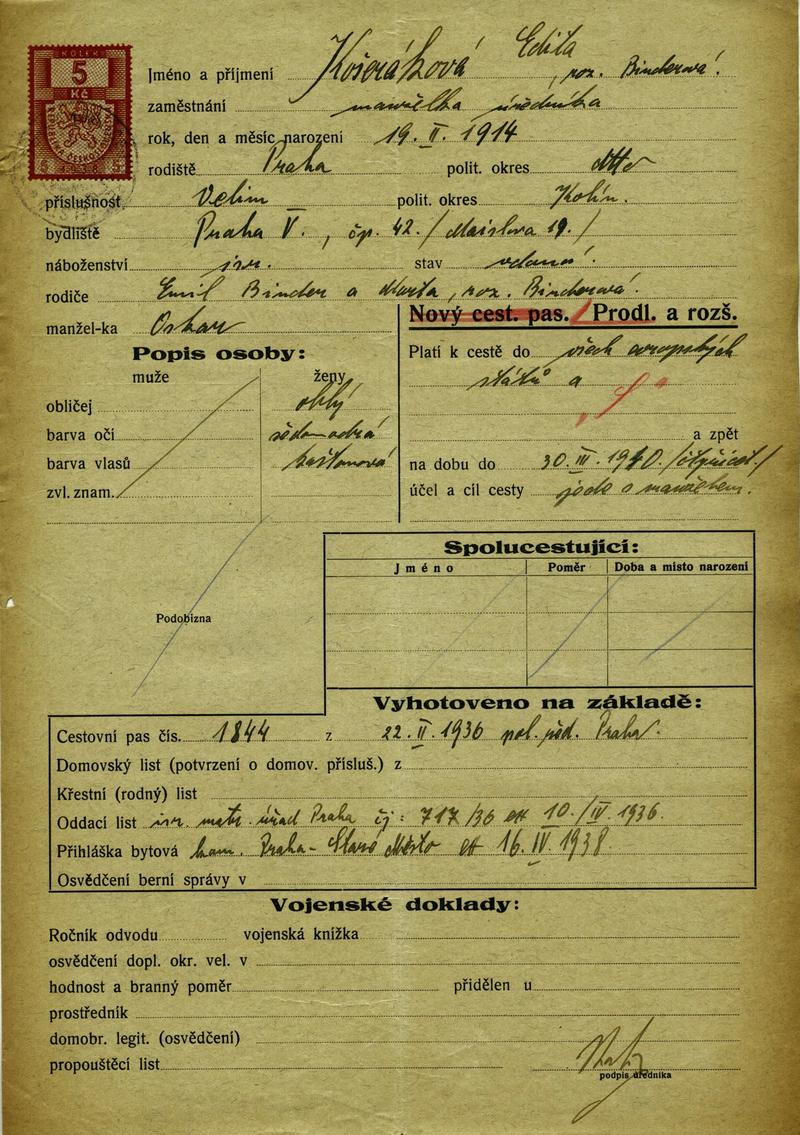 KOLEK
5
Kč
1938
Jméno a příjmení Košeráková Edita, roz. Binderová.
zaměstnání manželka úředníka
rok, den a měsíc narození 19. II. 1914
rodiště Praha polit. okres dtto
příslušnost Velim polit. okres Kolín.
bydliště Praha V., čp. 42. / Maislova 19. /
náboženství isr. stav vdaná.
rodiče Emil Binder a Marta, roz. Binderová.
manžel-ka Oskar
Nový cest. pas. / Prodl. a rozš.
Popis osoby:
muže ženy
obličej oblý
barva očí šedomodrá
barva vlasů kaštanová
zvl. znam.
Platí k cestě do všech evropských
států a
a zpět
na dobu do 30. III. 1940.
účel a cíl cesty jede s manželem.
Podobizna
Spolucestující:
Jméno Poměr Doba a místo narození
Vyhotoveno na základě:
Cestovní pas čís. 1844 z 22. II. 1936 pol. řed. Praha.
Domovský list (potvrzení o domov. přísluš.) z
Křestní (rodný) list
Oddací list isr. matr. úřad Praha čj: 717/36 10./IV. 1936.
Přihláška bytová kom. Praha - Staré Město 16. IV. 1938
Osvědčení berní správy v
Vojenské doklady:
Ročník odvodu vojenská knížka
osvědčení dopl. okr. vel. v
hodnost a branný poměr přidělen u
prostředník
domobr. legit. (osvědčení)
propouštěcí list
podpis úředníka